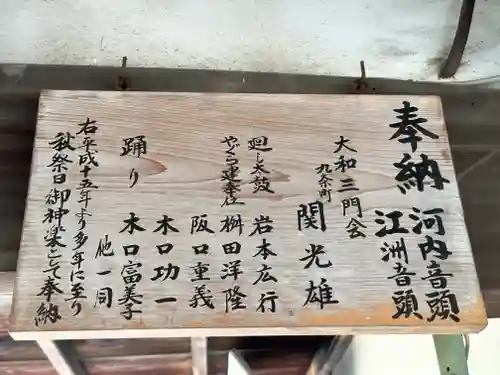 奉納 河内音頭
江洲音頭
大和三門会
九条町 関光雄
廻し太鼓 岩本広行
やぐら運奉仕 桝田洋隆
阪口重義
木口功一
踊り 木口富美子
他一同
右平成十五年より多年に至り
秋祭日御神楽として奉納